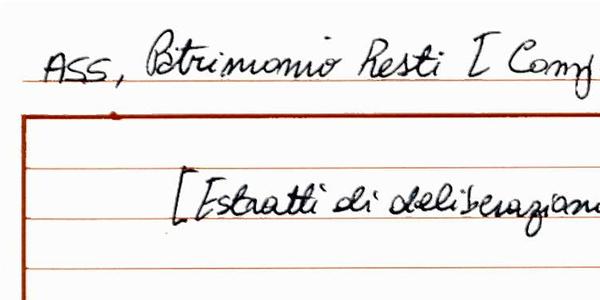 ASS, Patrimonio Resti [ Comp
[Estratti di deliberazion